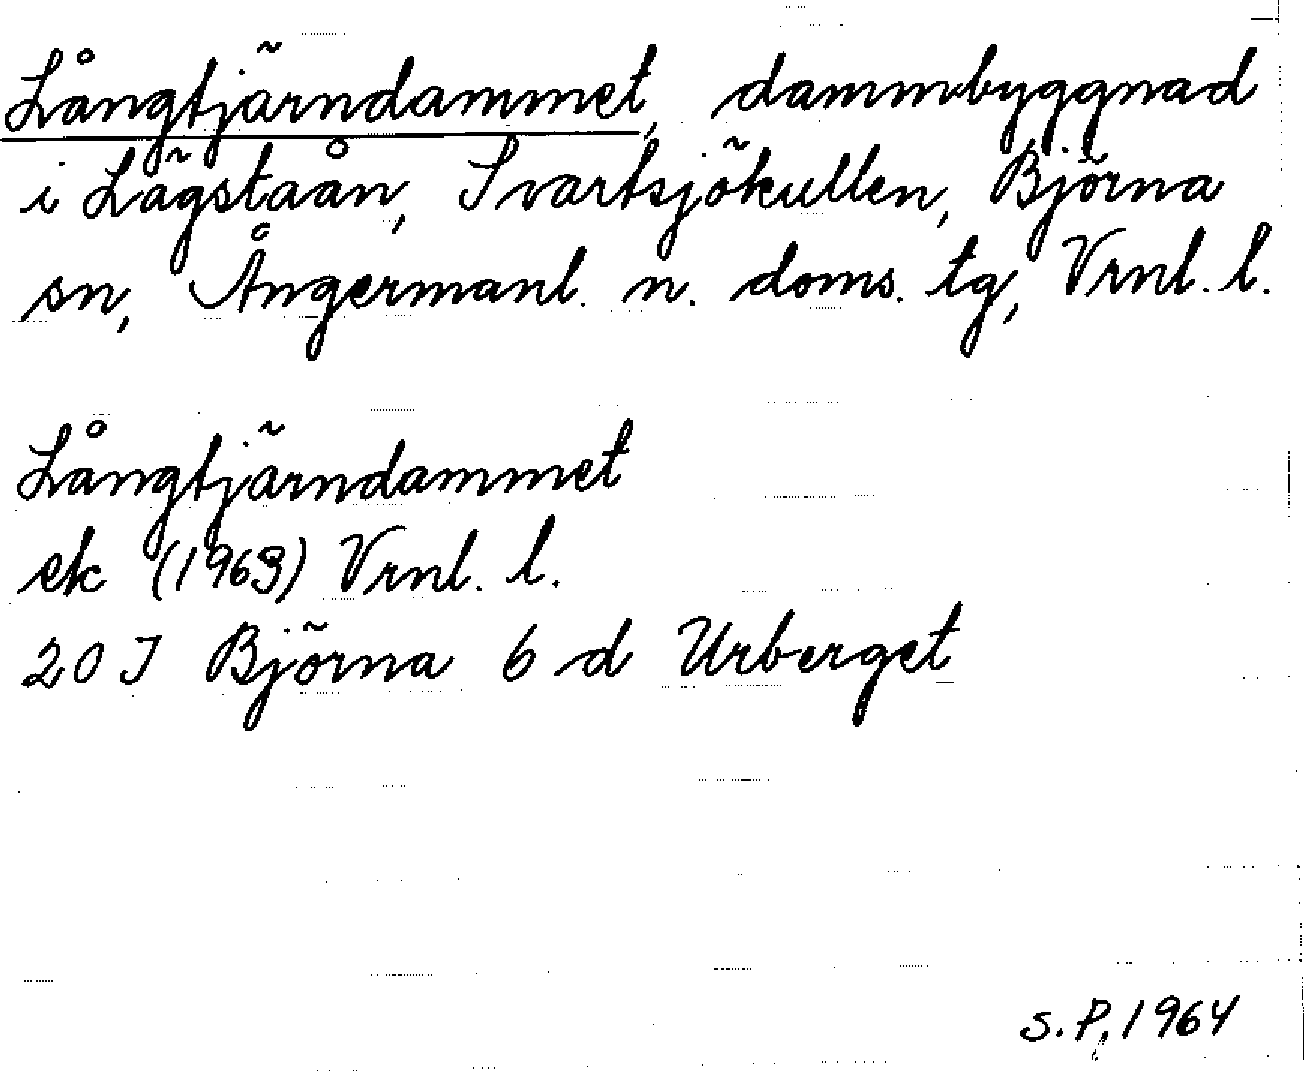 Långtjärndammet, dammbyggnad
i Lägstaån, Svartsjökullen, Björna
sn, Ångermanl. n. doms. tg, Vrnl. l.
Långtjärndammet
ek (1963) Vrnl. l.
20 J Björna 6 d Urberget
S. P. 1964